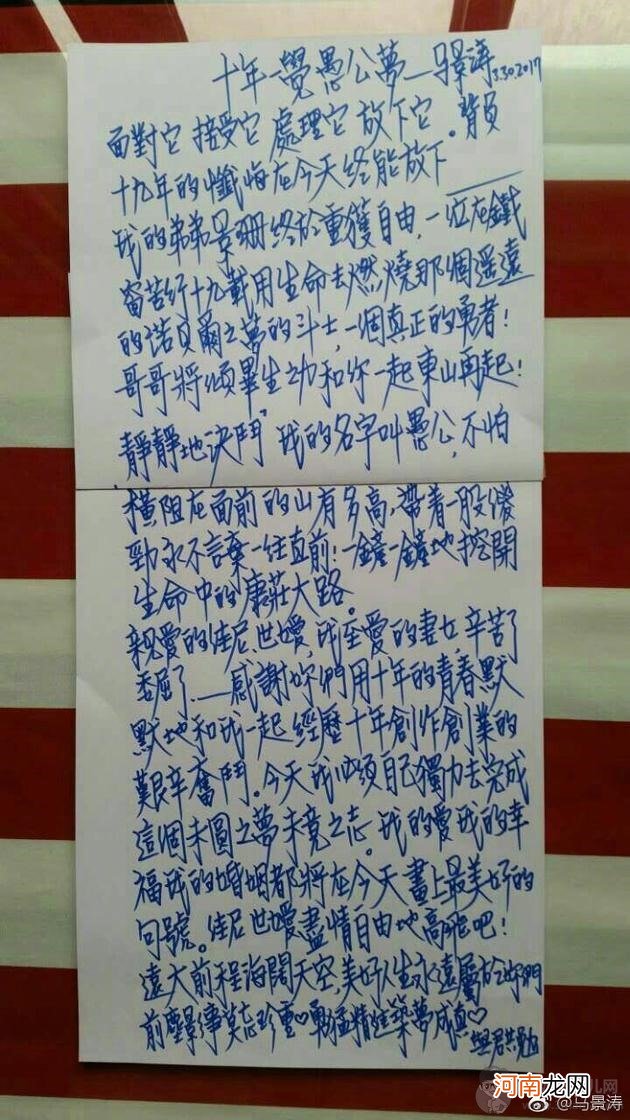 十年一覺愚公夢—馬景濤 3.30.2017
面對它 接受它 處理它 放下它。背負
十九年的懺悔在今天終能放下——
我的弟弟景珊終於重獲自由,一位在鐵
窗苦行十九載用生命去燃燒那個遥遠
的諾貝爾之夢的斗士,一個真正的勇者!
哥哥將傾畢生之功和你一起東山再起!
靜靜地決鬥,我的名字叫愚公,不怕
橫阻在面前的山有多高,帶着一股傻
勁永不言棄一往直前!一鏟一鏟地挖開
生命中的康莊大路。
親愛的佳尼、世嬡,我至愛的妻女,辛苦了
委屈了.——感謝妳們用十年的青春默
默地和我一起經歷十年創作創業的
艱辛奮鬥。今天我必須自己獨力去完成
這個未圓之夢未竟之志。我的愛我的幸
福我的婚姻都將在今天畫上最美好的
句號。佳尼世嬡盡情自由地高飛吧!
遠大前程海闊天空,美好人生永遠屬於妳們
前塵影事莫忘珍重♡勇猛精進築夢成真♡
與君共勉
河南龙网
@马景涛